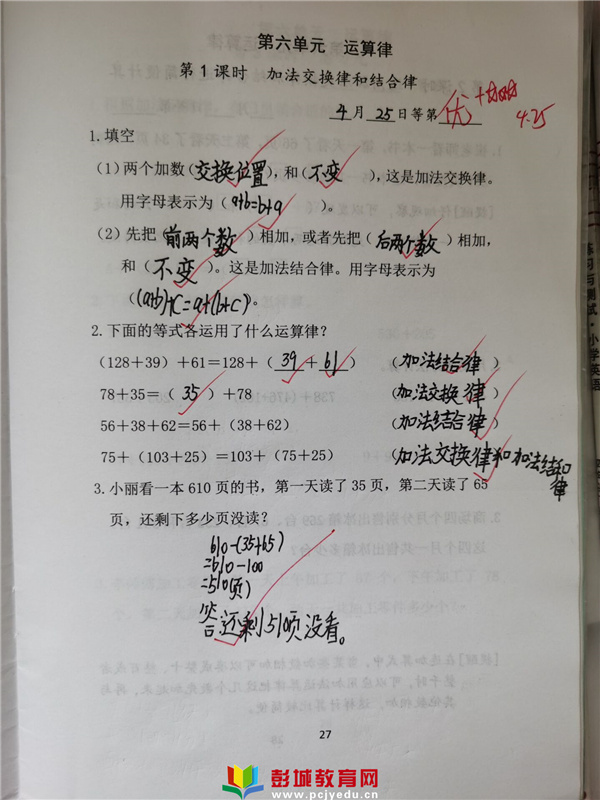 第六单元 运算律
第1课时 加法交换律和结合律
4月25日等第 优
4.25
1.填空
(1)两个加数(交换位置),和(不变),这是加法交换律。
用字母表示为(a+b=b+a)。
(2)先把(前两个数)相加,或者先把(后两个数)相加,
和(不变)。这是加法结合律。用字母表示为
((a+b)+c=a+(b+c))。
2.下面的等式各运用了什么运算律?
(128+39)+61=128+(39+61) (加法结合律)
78+35=(35)+78 (加法交换律)
56+38+62=56+(38+62) (加法结合律)
75+(103+25)=103+(75+25) (加法交换律和加法结和律
3.小丽看一本610页的书,第一天读了35页,第二天读了65
页,还剩下多少页没读?
610-(35+65)
=610-100
=510(页)
答:还剩510页没看。
27
彭城教育网
www.pcjyedu.cn